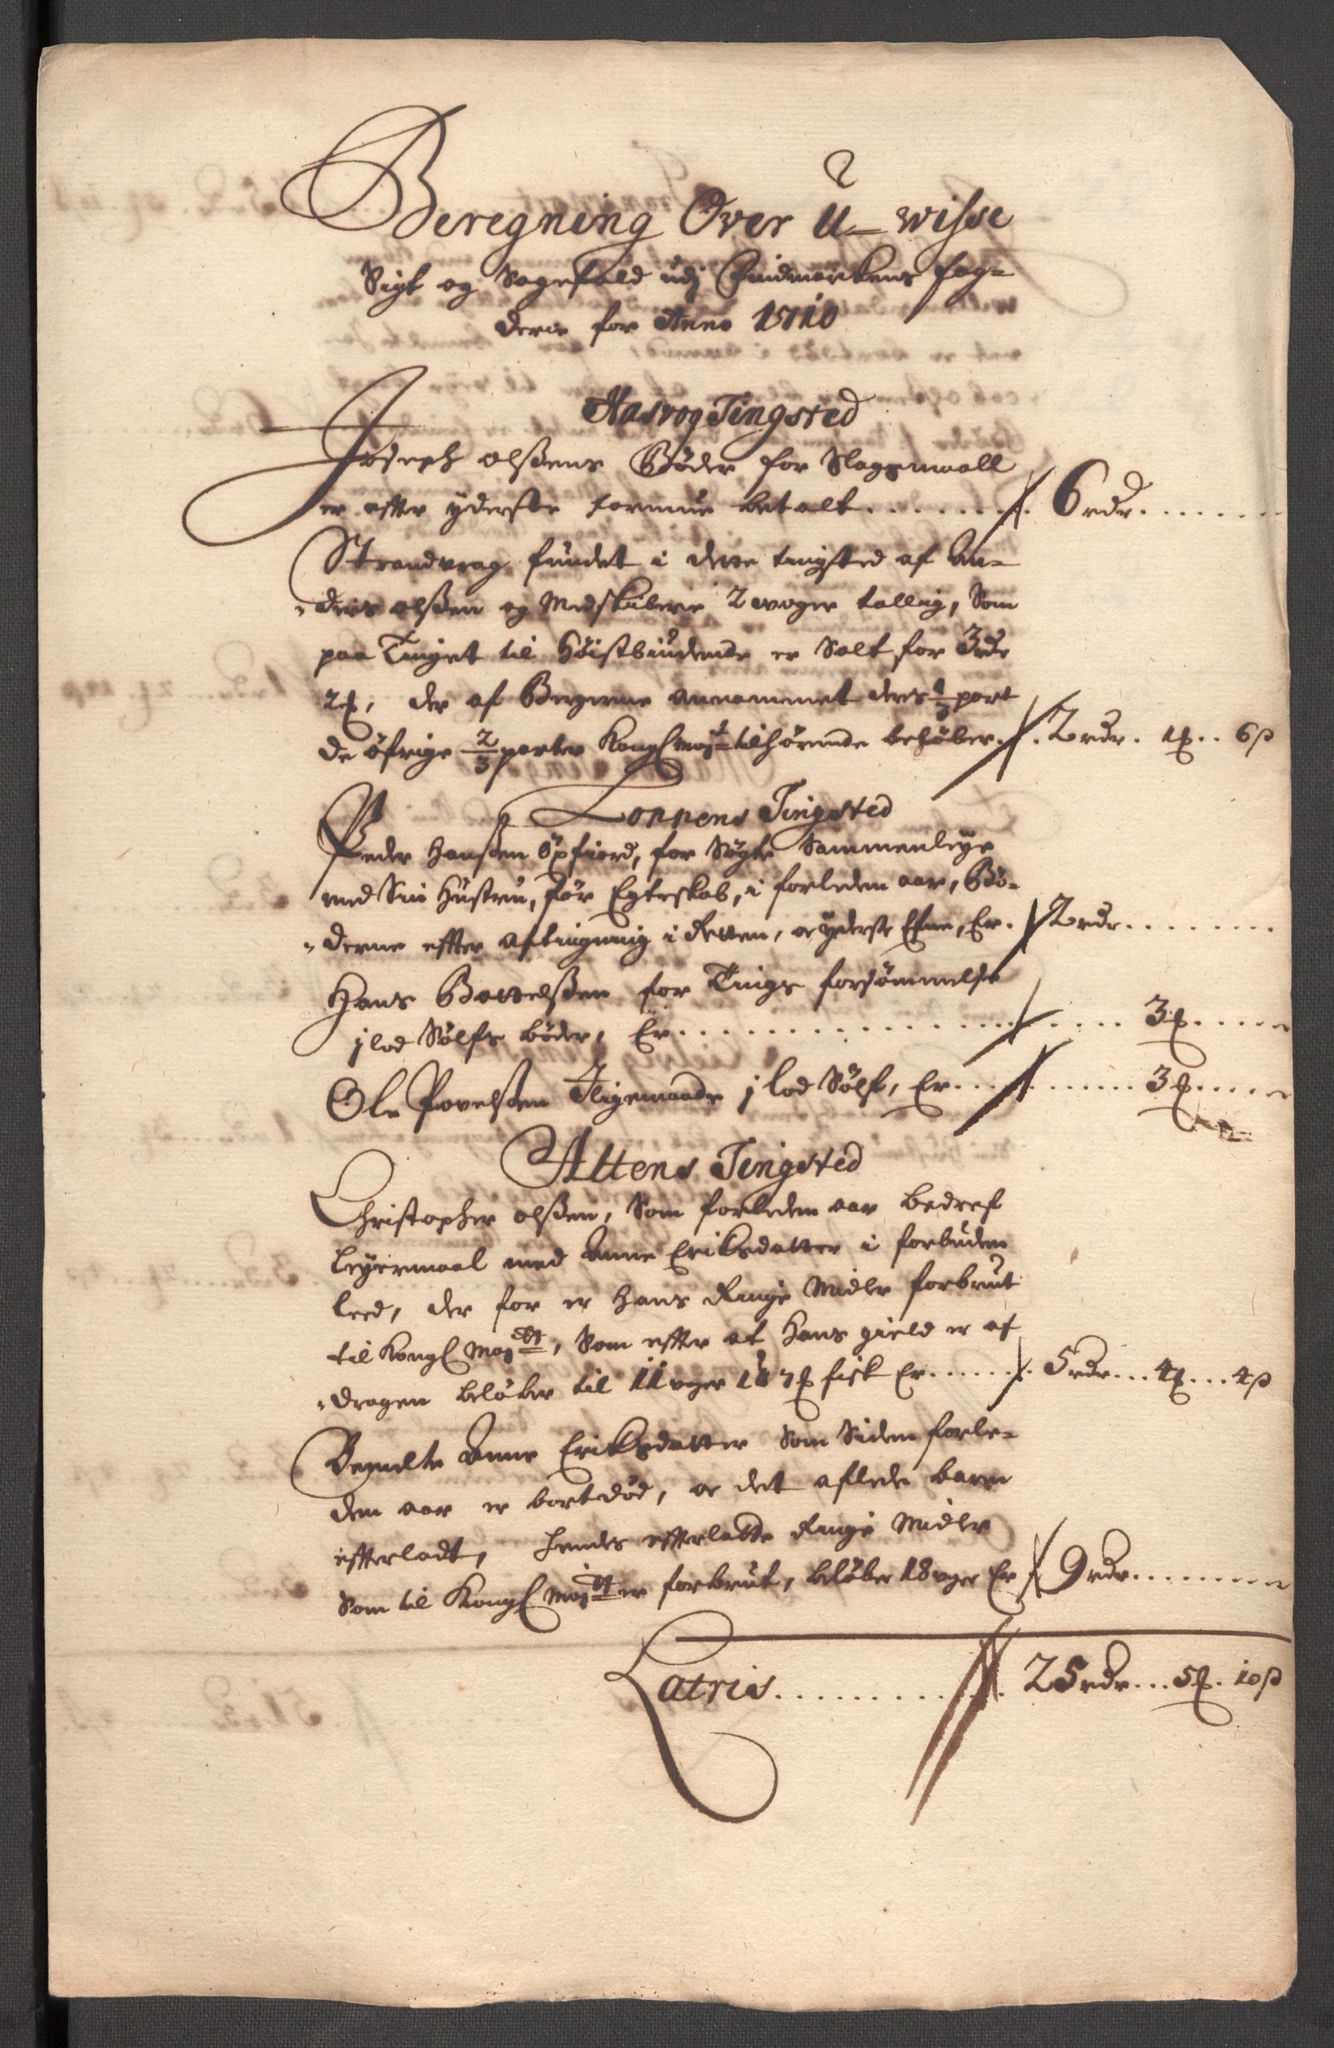 Beregning Over U-wisse
Sigt og Sagefald udj Findmarkens fog-
derie for Anno 1710
Hasvog Tingsted
Joseph olßens Bøder for Slagsmaall
er effter yderste formue betalt . . . . . . . 6 rdr. . . . . .
Strandvrag fundet i dette tingsted af An-
ders olßen og Medskabere 2 woger tallig, Som
paa Tinget til Høistbiudende er Solt for 3 rdr
2 ₰, der af Biergerne annammet deris 1/3 part
de øfrige 2/3 parter Kongl Mayt tilhørende beløber . . 2 rdr. 1 ₰ . . 6 ß
Loppens Tingsted
Peder Hanßen Øxfiord, for Søgte Sammenleye
med Sin Hustru, før Egteskab, i forleden aar, Bø-
derne effter aftingning i Retten, oc yderste Efne, Er. 2 rdr. . . . . . .
Hans Bottelßen for Tings forsømmelse
j lod Sølfs bøder, Er . . . . . . . . . . . . 3 ₰ . . . . .
Ole Povelßen Iligemaade j lod Sølf, Er . . . . . . . . 3 ₰ . . . . .
Altens Tingsted
Christopher olßen, Som forleden aar bedref
Leyermaal med Anne Eriksdatter i forbuden
leed, der for er Hans Ringe Midler forbrut
til Kongl Maytt, Som effter at Hans gield er af
dragen beløber til 11 woger 1 ₰ fisk Er . . . . . 5 rdr . . . 4 ₰ . . . 4 ß
Bemelte Anne Eriksdatter Som Siden forle-
den aar er bortdød, oc det aflede barn
effterladt, hendes effterladte Ringe Midler
Som til Kongl Maytt er forbrut, beløber 18 woger Er 9 rdr. . . . . . .
Latris . . . . . . . . . . . 25 rdr . . . 5 ₰ . 10 ß